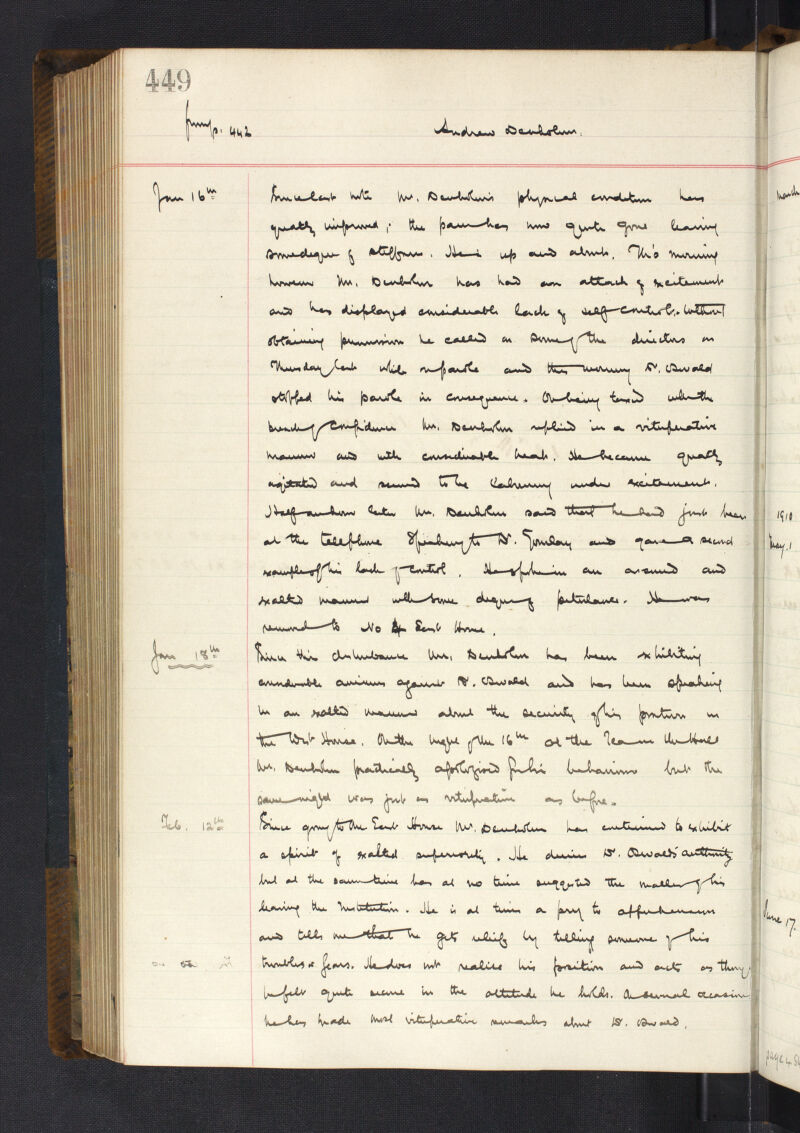 449
from p. 442
Andrew Denholm.
Jan 16th
Since last note Mr. Denholm's physical condition has
greatly improved; the pain has now quite gone leaving
some degree of stiffness. He is up and about. This morning
however Mr. Denholm has had an attack of excitement
and has displayed considerable lack of self control. Without
obtaining permission he called on some of the directors on
Thursday last while on parole and this morning Dr. Oswald
stopped his parole in consequence. On being taxed with the
breach of confidence Mr. Denholm replied in a vituperative
manner and with considerable heat. He became greatly
agitated and seemed to be labouring under excitement.
Half an hour later Mr. Denholm said that he had just been
at the telephone speaking to Dr. and gave a second
example of his lack of control. He spoke in an and
exalted manner with some degree of petulance. He was
removed to No 4 East House.
Jan 18th
Since this disturbance Mr. Denholm has been exhibiting
considerable animus against Dr. Oswald and has been speaking
in an exalted manner about the security of his position in
the West House. On the night of the 16th at the in the Hall
Mr. Denholm practically apologised for his behaviour but the
same night was just as vituperative as before.
Feb. 12th
Since going to the East House Mr. Denholm has continued to exhibit
a spirit of exalted superiority. He denies Dr. Oswald's authority
but at the same time has at no time suggested the matter of his
leaving the Institution. He is at times a prey to apprehension
and tells me that he gets relief by telling someone of his
troubles & fears. He does not realise his position and acts as though
he felt quite secure in the attitude he holds. On several occasions
he has made most vituperative remarks about Dr. Oswald.
March
1910
May. 1
June 17.